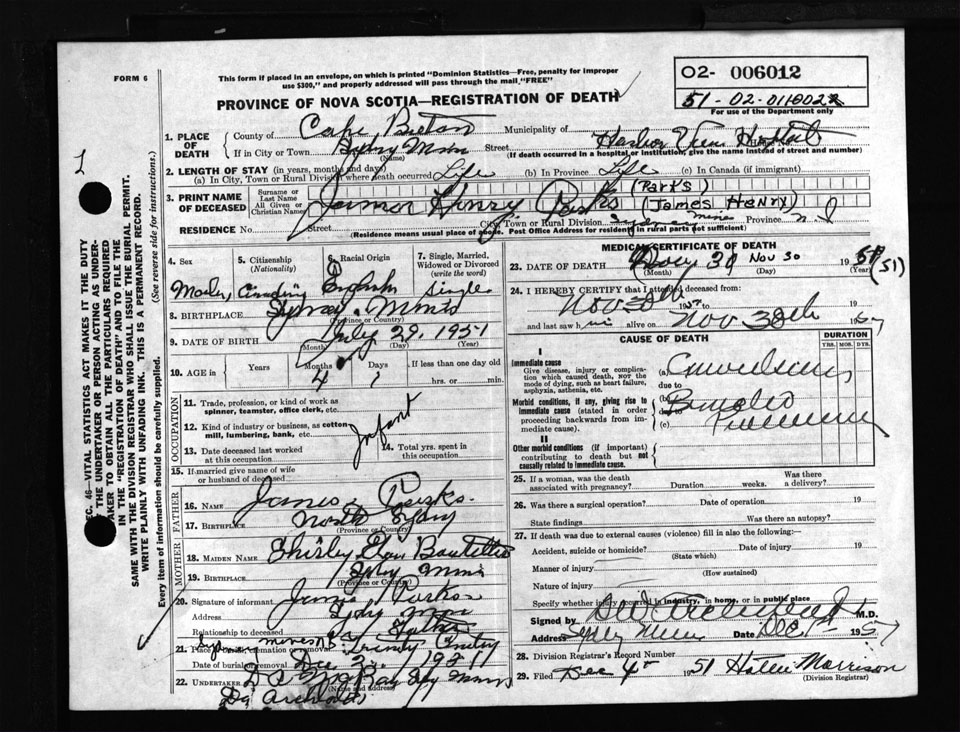 FORM 6
This form if placed in an envelope, on which is printed "Dominion Statistics—Free, penalty for improper
use $300," and properly addressed will pass through the mail "FREE"
PROVINCE OF NOVA SCOTIA—REGISTRATION OF DEATH
02- 006012
51-02-011002
For use of the Department only
1. PLACE OF DEATH
County of Cape Breton
Municipality of
If in City or Town Sydney Mines
(Name)
Street Harbor View Hospital
(If death occurred in a hospital or institution, give the name instead of street and number)
2. LENGTH OF STAY (in years, months and days)
(a) In City, Town or Rural Division where death occurred Life (b) In Province Life (c) In Canada (if immigrant)
3. PRINT NAME OF DECEASED
Surname or Last Name
All Given or Christian Names
James Henry Parks (Parks)
(James Henry)
RESIDENCE No. Street City, Town or Rural Division Sydney Mines Province N.S
(Residence means usual place of abode. Post Office Address for residents in rural parts not sufficient)
4. Sex
5. Citizenship
(Nationality)
6. Racial Origin
7. Single, Married, Widowed or Divorced
(write the word)
English Single
8. BIRTHPLACE Sydney Mines
(Province or Country)
9. DATE OF BIRTH July 29, 1951
(Month) (Day) (Year)
10. AGE in
Years
Months 4
Days 1
If less than one day old
hrs. or min.
OCCUPATION
11. Trade, profession, or kind of work as
spinner, teamster, office clerk, etc.
12. Kind of industry or business, as cotton
mill, lumbering, bank, etc.
Infant
13. Date deceased last worked
at this occupation
14. Total yrs. spent in
this occupation
15. If married give name of wife
or husband of deceased
FATHER
16. Name James Parks
17. Birthplace North Sydney
(Province or Country)
MOTHER
18. MAIDEN NAME Shirley
19. BIRTHPLACE Sydney Mines
(Province or Country)
20. Signature of informant James Parks
Address Sydney Mines
Relationship to deceased Father
21. Place of burial, cremation or removal Sydney Mines Trinity
Date of burial Dec 2, 1951
22. UNDERTAKER
(Name and address)
MEDICAL CERTIFICATE OF DEATH
23. DATE OF DEATH Nov 30 NOV 30 19 51 (51)
(Month) (Day) (Year)
24. I HEREBY CERTIFY that I attended deceased from:
Nov 30th 1951 to 19
and last saw him alive on Nov 30th 1951
CAUSE OF DEATH
DURATION
YRS. MOS. DYS.
I
Immediate cause
Give disease, injury or complica-
tion which caused death, not the
mode of dying, such as heart failure,
asphyxia, asthenia, etc.
(a) Convulsions
due to
Morbid conditions, if any, giving rise to
immediate cause (stated in order
proceeding backwards from im-
mediate cause).
(b) Broncho
(c) Pneumonia
II
Other morbid conditions (if important)
contributing to death but not
causally related to immediate cause.
25. If a woman, was the death associated with pregnancy?
Duration weeks.
Was there a delivery?
26. Was there a surgical operation? Date of operation 19
State findings Was there an autopsy?
27. If death was due to external causes (violence) fill in also the following:—
Accident, suicide or homicide? Date of injury 19
(State which)
Manner of injury
(How sustained)
Nature of injury
Specify whether injury occurred in industry, in home, or in public place
Signed by M.D.
Address Sydney Mines Date Dec 1st 1951
28. Division Registrar's Record Number
29. Filed Dec 4th 1951 Morrison
(Division Registrar)
SEC. 46—VITAL STATISTICS ACT MAKES IT THE DUTY
OF THE UNDERTAKER OR PERSON ACTING AS UNDER-
TAKER TO OBTAIN ALL THE PARTICULARS REQUIRED
IN THE "REGISTRATION OF DEATH" AND TO FILE THE
SAME WITH THE DIVISION REGISTRAR WHO SHALL ISSUE THE BURIAL PERMIT.
WRITE PLAINLY WITH UNFADING INK. THIS IS A PERMANENT RECORD.
Every item of information should be carefully supplied. (See reverse side for instructions.)